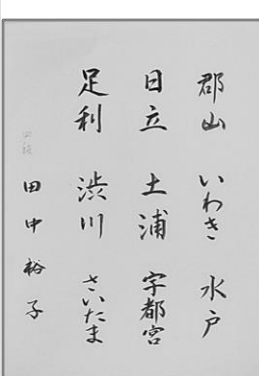 郡山 いわき 水戸
日立 土浦 宇都宮
足利 渋川 さいたま
田中裕子